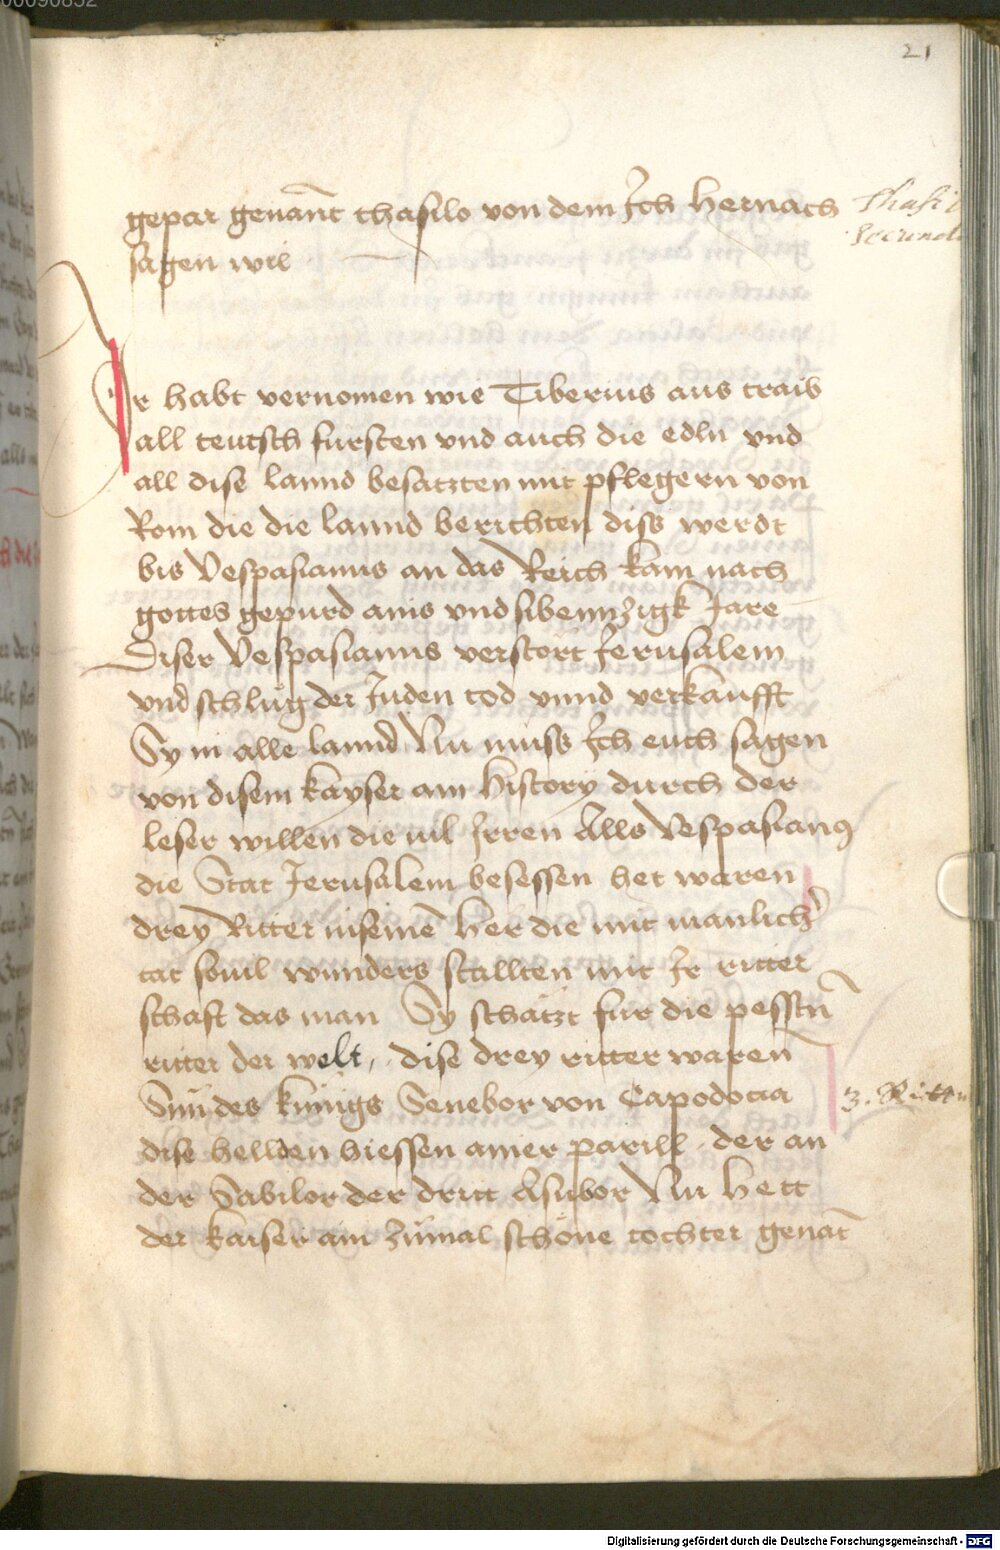 00090852
21
gepar genant̄ thasilo von dem Ich hernach
sagen wil
Thasil
Secund
Ir habt vernomen wie Tiberius aus traib
all teutsch fursten vnd auch die edln vnd
all dise lannd besatzten mit pflegern von
Rom die die lannd berichten diss werdt
bis Vespasianus an das Reich kam nach
gottes gepurd ains vnd sibennzigk Jare
Diser Vespasianus verstört Jerusalem
vnd schlug der Juden tod vnnd verkaufft
Sy in alle lannd Nu muss Ich euch sagen
von disem kayser ain history durch der
leser willen die uil Irren Alls Vespasianꝰ
die Stat Jerusalem besessen het waren
drey Ritter in seinē her die mit manlich̛
tat souil wunders stallten mit Ir ritter
schaft das man Sy schätzt fur die pesstn̄
ritter der welt, dise drey ritter waren
Sün des künigs Senebor von Capodocia
3. Ritt
dise hellden hiessen ainer parill der an
der Sabilor der dritt Asubor Nu hett
der kaiser ain zümal schöne tochter genāt
Digitalisierung gefördert durch die Deutsche Forschungsgemeinschaft - DFG